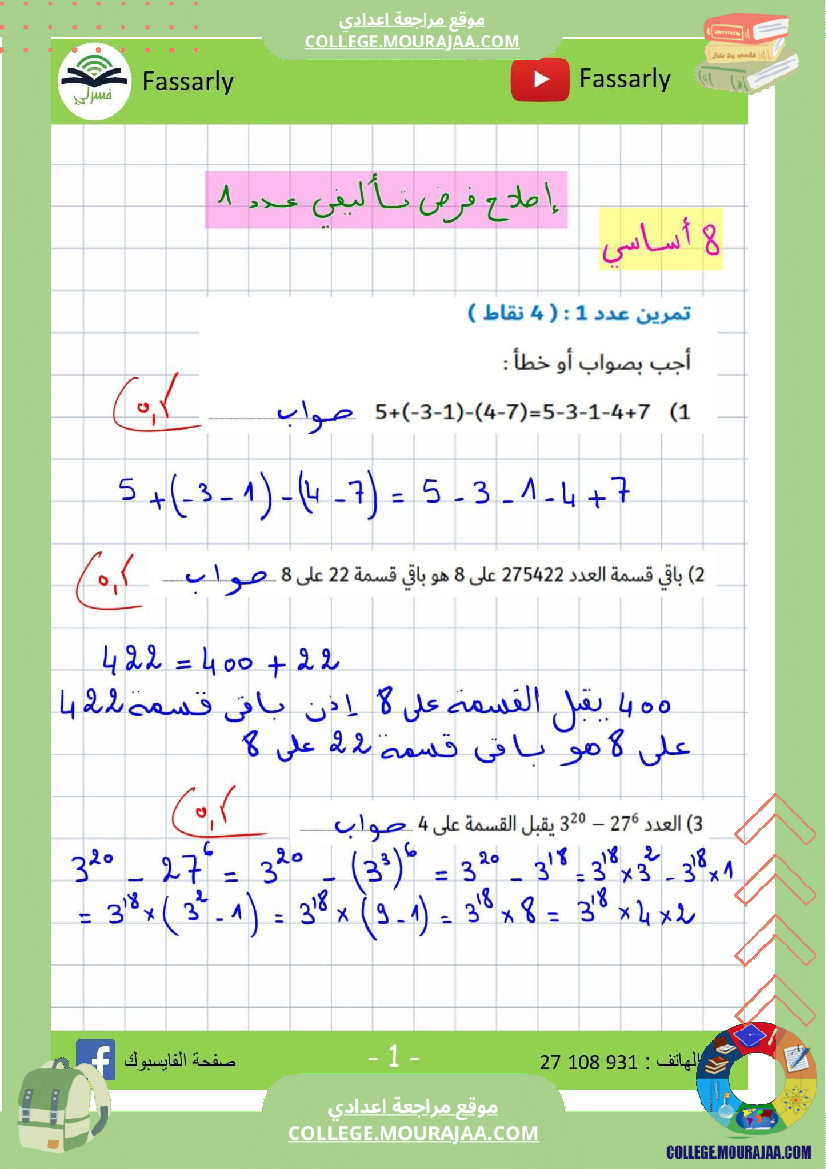 موقع مراجعة اعدادي
COLLEGE.MOURAJAA.COM
فسرلي
Fassarly
Fassarly
إصلاح فرض تأليفي عدد 1
8 أساسي
تمرين عدد 1 : ( 4 نقاط )
أجب بصواب أو خطأ :
1) 5+(-3-1)-(4-7)=5-3-1-4+7 صواب
5 + (-3 - 1) - (4 - 7) = 5 - 3 - 1 - 4 + 7
2) باقي قسمة العدد 275422 على 8 هو باقي قسمة 22 على 8 صواب
422 = 400 + 22
400 يقبل القسمة على 8 إذن باقي قسمة 422
على 8 هو باقي قسمة 22 على 8
3) العدد 3²⁰ − 27⁶ يقبل القسمة على 4 صواب
3²⁰ - 27⁶ = 3²⁰ - (3³)⁶ = 3²⁰ - 3¹⁸ = 3¹⁸ × 3² - 3¹⁸ × 1
= 3¹⁸ × (3² - 1) = 3¹⁸ × (9 - 1) = 3¹⁸ × 8 = 3¹⁸ × 4 × 2
صفحة الفايسبوك
- 1 -
الهاتف : 27 108 931
موقع مراجعة اعدادي
COLLEGE.MOURAJAA.COM
COLLEGE.MOURAJAA.COM